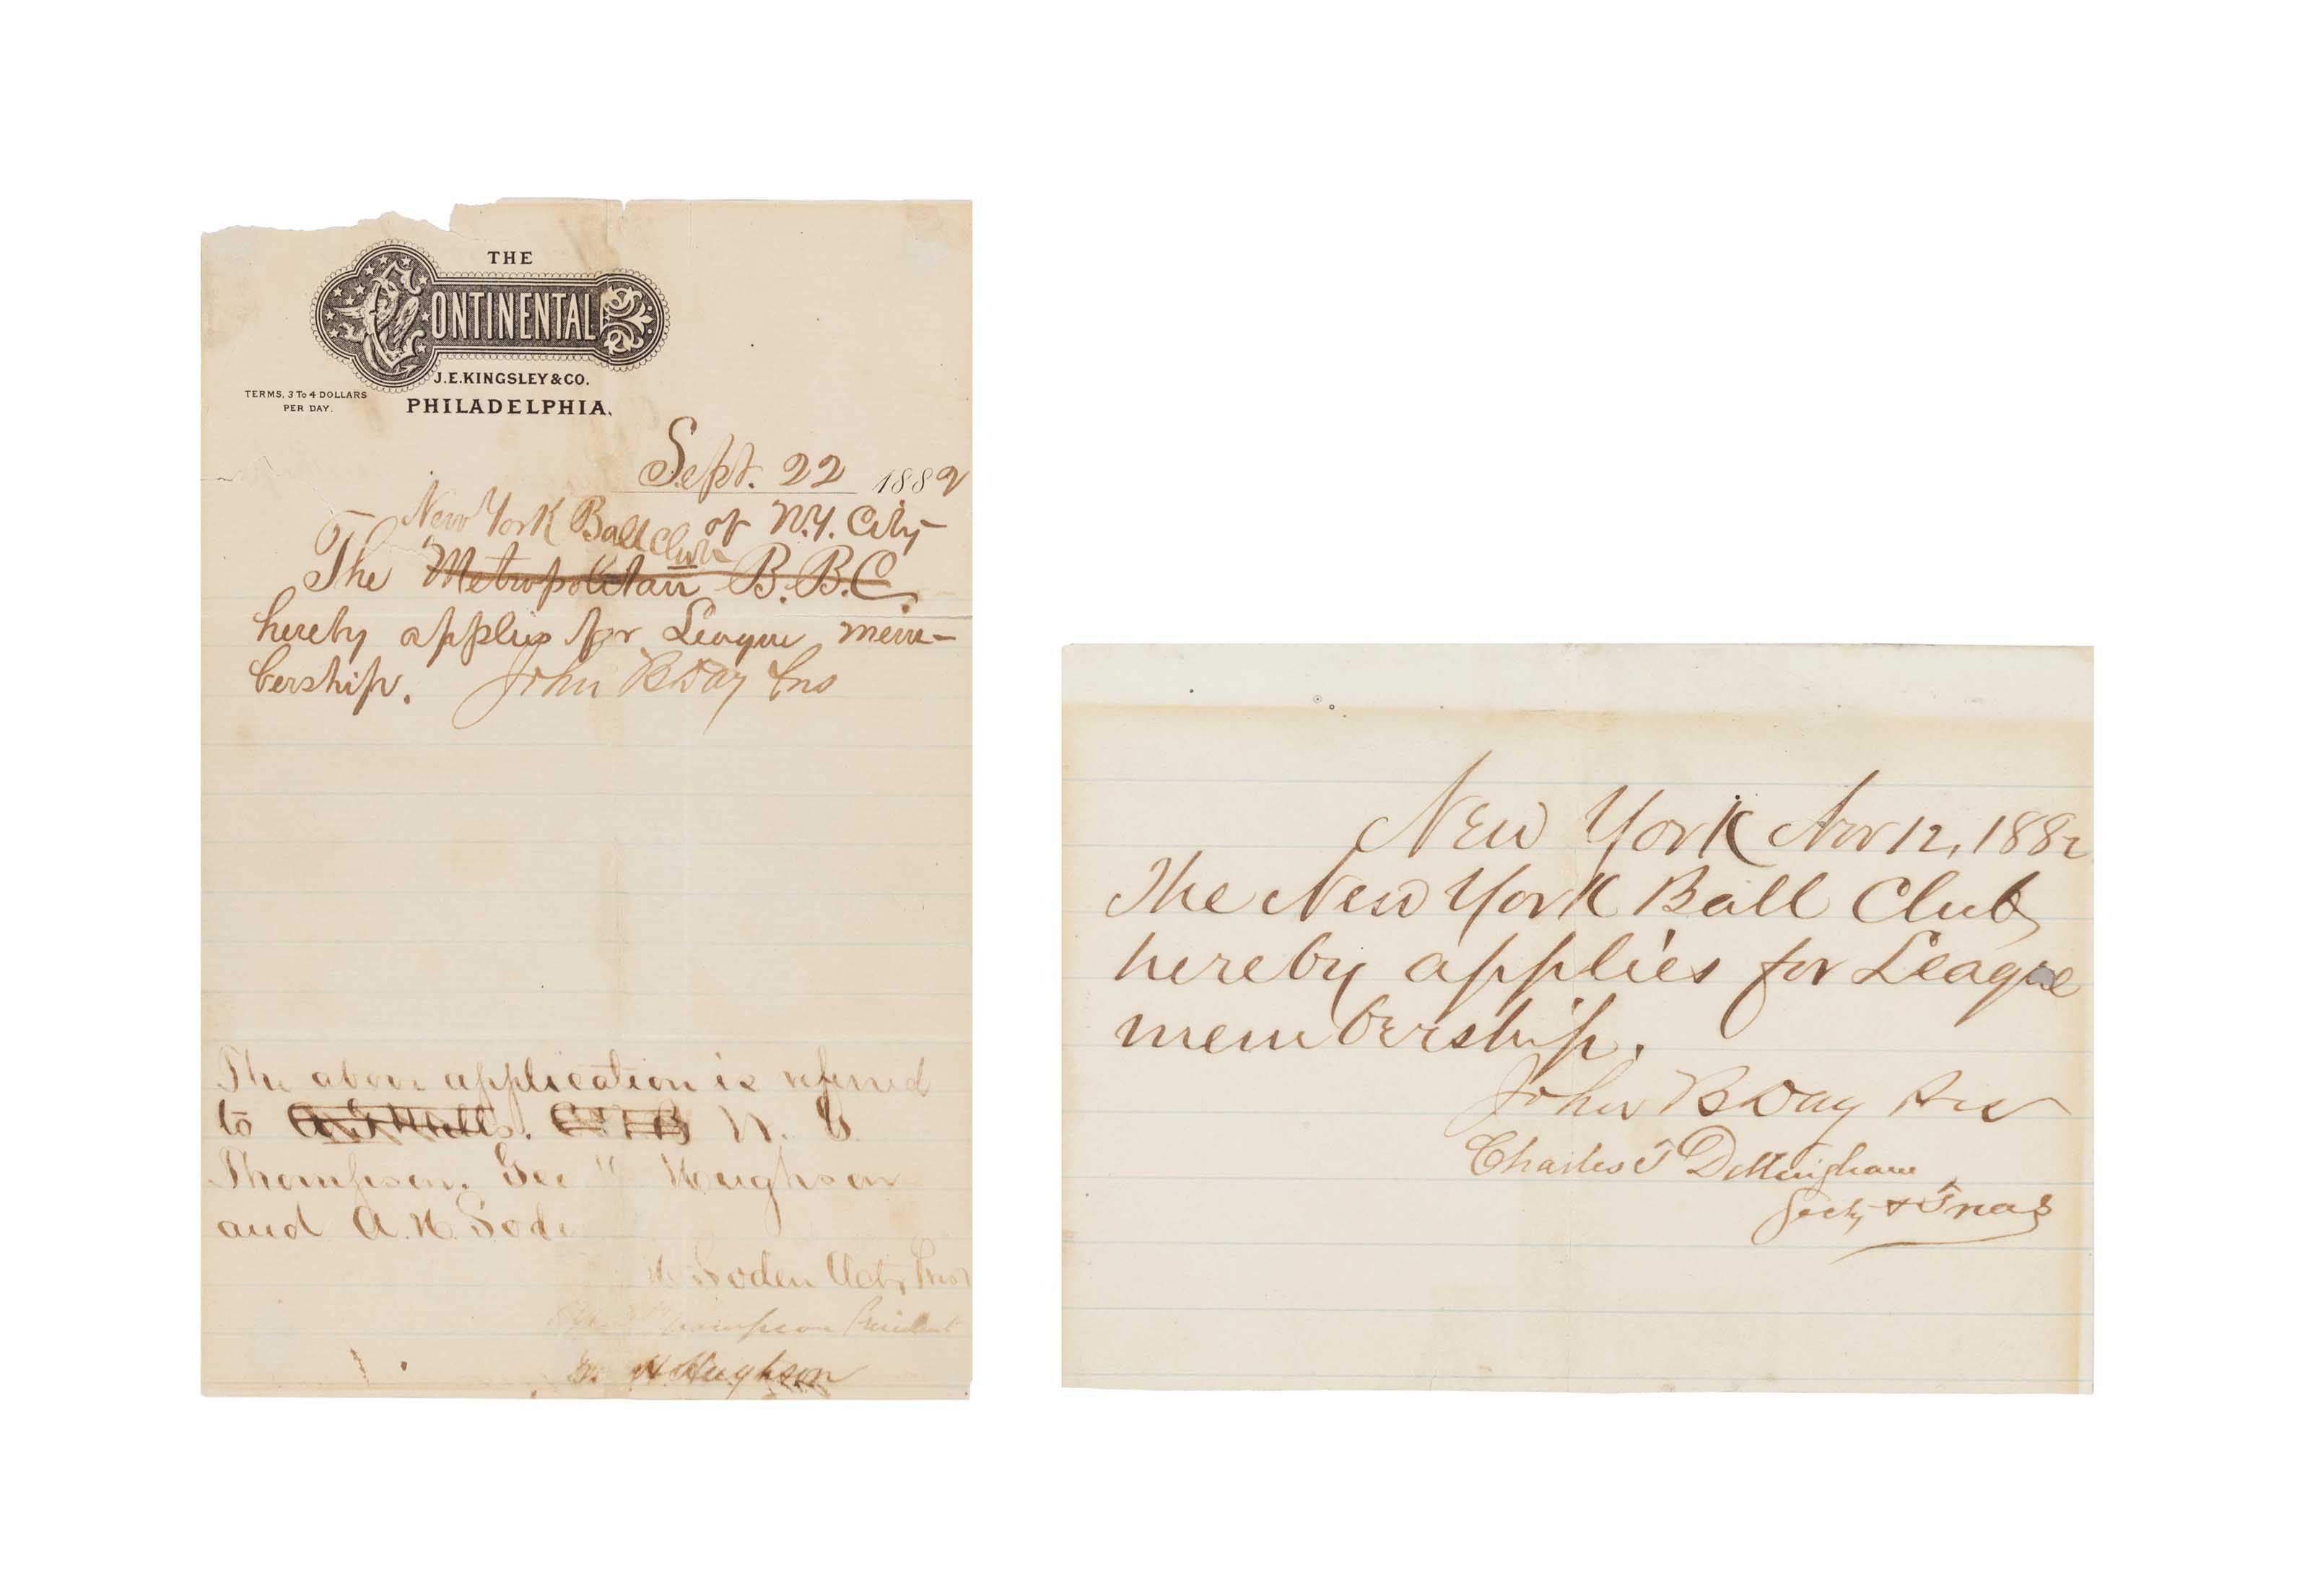 THE
CONTINENTAL
J.E.KINGSLEY & CO.
TERMS, 3 To 4 DOLLARS
PER DAY.
PHILADELPHIA.
Sept. 22 1882
New York Ball Club of N.Y. City
The Metropolitan B.B.C.
hereby applies for League mem-
bership. John B Day Pres
The above application is referred
to A.G. Mills. N. 
Thompson, Geo Hughson
and A.H. Sode
H Soden Act. Prest
Thompson President
Geo. H. Hughson
New York Nov 12, 1882
The New York Ball Club
hereby applies for League
membership.
John B Day Pres
Charles T Dillingham
Secty & Treas